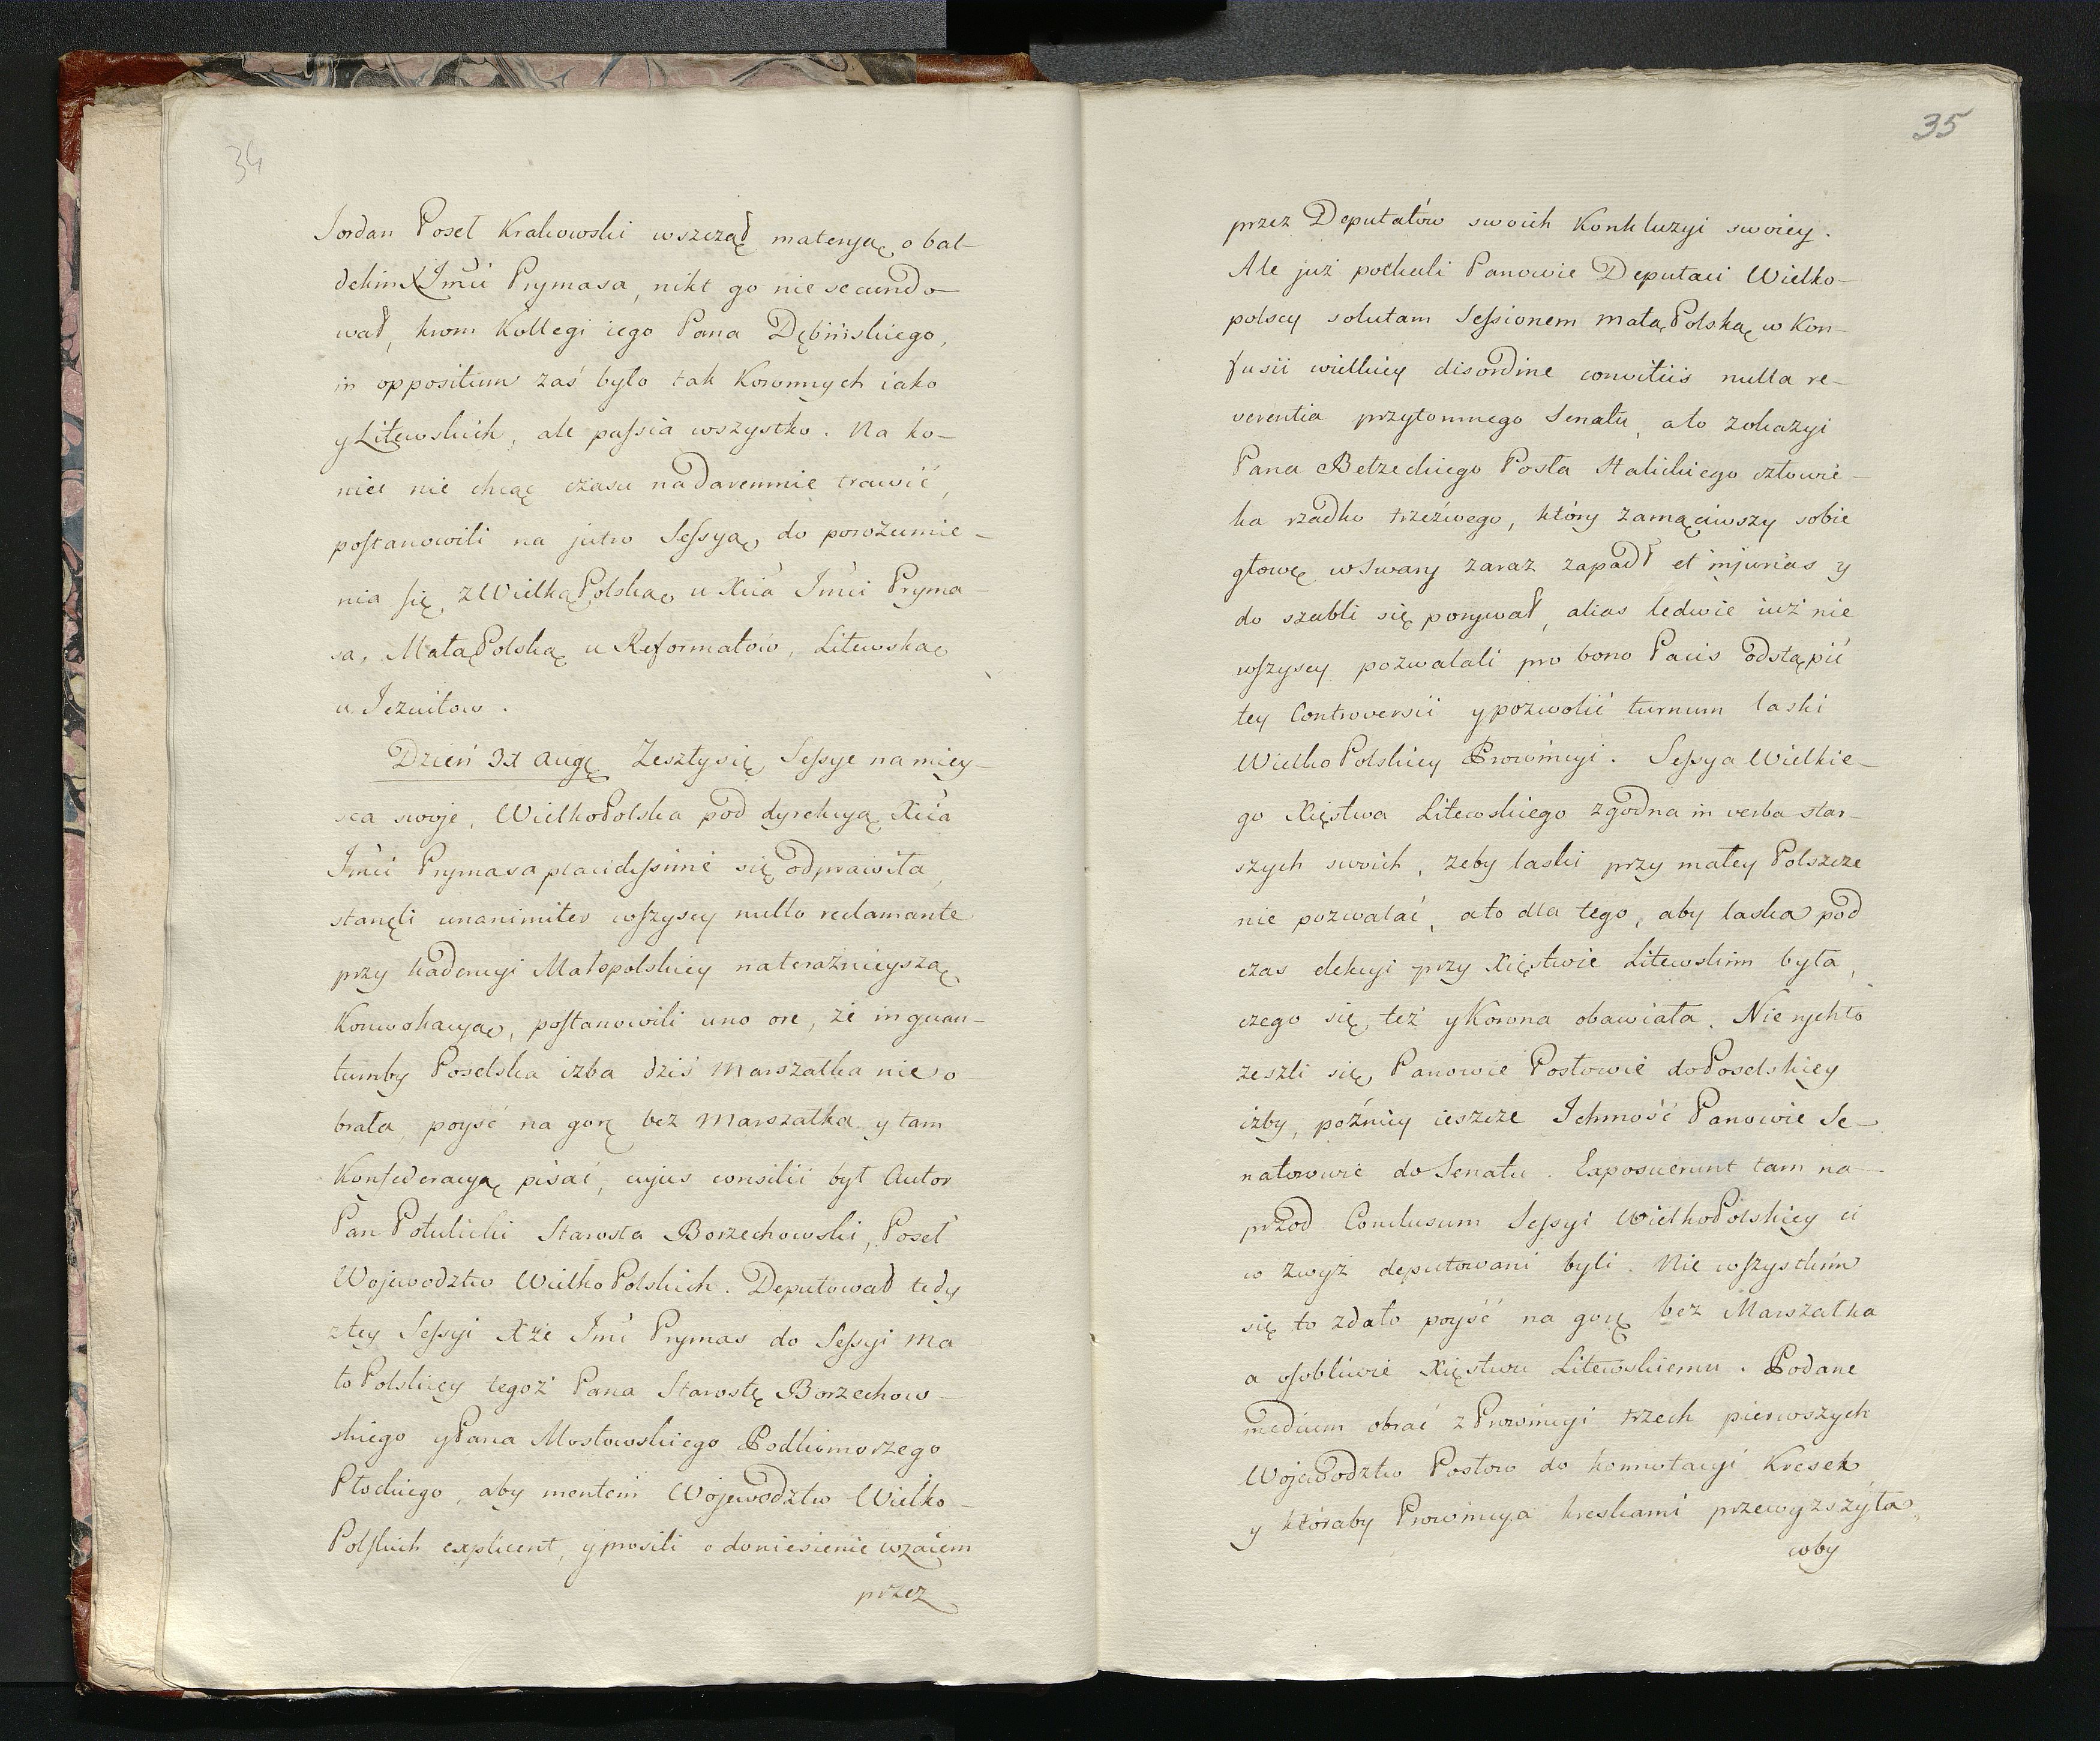 34
Jordan Poseł Krakowski wszczął materyą o bal-
dekin X Jmći Prymasa, nikt go nie secundo-
wał, krom Kollegi iego Pana Dębińskiego,
in oppositum zaś było tak Koronnych iako
y Litewskich, ale passia wszystko. Na ko-
niec nie chcąc czasu nadaremnie trawić,
postanowili na jutro Sessyą, do porozumie-
nia się, z Wielką Polską u Xcia Jmći Pryma-
sa, Małą Polską u Reformatów, Litewską
u Jezuitow.
Dzień 31 Aug. Zeszły się Sessye na miey-
sca swoje, WielkoPolska pod dyrekcyą Xcia
Jmći Prymasa placidissime się odprawiła,
stanęli unanimiter wszyscy nullo reclamante
przy kadencyi Małopolskiey na teraźnieyszą
Konwokacyą, postanowili uno ore, że in quan-
tumby Poselska izba dziś Marszałka nie o
brała, poyść na gorę bez Marszałka y tam
Konfederacyą pisać, cujus consilii był Autor
Pan Potulicki Starosta Borzechowski, Poseł
Wojewodztw WielkoPolskich. Deputował tedy
z tey Sessyi Xże Jmć Prymas do Sessyi Ma
łoPolskiey tegoż Pana Starostę Borzechow-
skiego y Pana Mostowskiego Podkomorzego
Płockiego, aby mentem Wojewodztw Wielko-
Polskich explicent, y prosili o doniesienie wzaiem
przez
35
przez Deputatów swoich Konkluzyi swoiey.
Ale już Panowie Deputaci Wielko-
polscy solutam Sessionem Małą Polską w Kon-
fusii wielkiey disordine convitiis nulla re-
verentia przytomnego Senatu, a to z okazyi
Pana Betzeckiego Posła Halickiego człowie-
ka rzadko trzeźwego, który zamąciwszy sobie
głowę w swary zaraz zapadł et injurias y
do szabli się porywał, alias ledwie iuż nie
wszyscy pozwalali pro bono Pacis odstąpić
tey Controversii y pozwolić turnum laski
WielkoPolskiey Prowincyi. Sessya Wielkie-
go Xięstwa Litewskiego zgodna in verba star-
szych swoich, żeby laski przy małey Polszcze
nie pozwalać, a to dla tego, aby laska pod
czas elekcyi przy Xięstwie Litewskim była,
czego się też y Korona obawiała. Nie rychło
zeszli się Panowie Posłowie do Poselskiey
izby, poźniey ieszcze Ichmość Panowie Se-
natorowie do Senatu. Exposuerunt tam na-
przod Conclusum Sessyi WielkoPolskiey ci
w zwyż deputowani byli. Nie wszystkim
się to zdało poyść na gorę bez Marszałka
a osobliwie Xięstwu Litewskiemu. Podane
medium obrać z Prowincyi trzech pierwszych
Wojewodztw Posłow do konnotacyi Kresek
y któraby Prowincya kreskami przewyzszyła,
woby